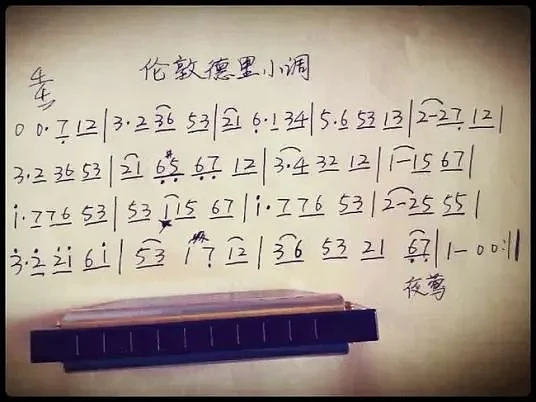 4/4 伦敦德里小调
0 0·7 12|3·2 36 53|21 6·1 34|5·6 53 13|2-27 12|
3·2 36 53|21 6#5 67 12|3·4 32 12|1-15 67|
i·7 76 53|53 115 67|i·7 76 53|2-25 55|
3·2 2i 6i|53 17 12|36 53 21 67|1-00:||
夜莺